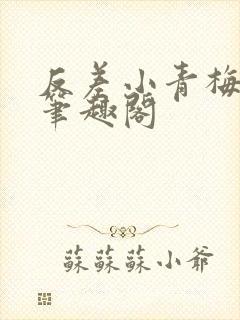 反差小青梅
笔趣阁
蘇蘇蘇小爺